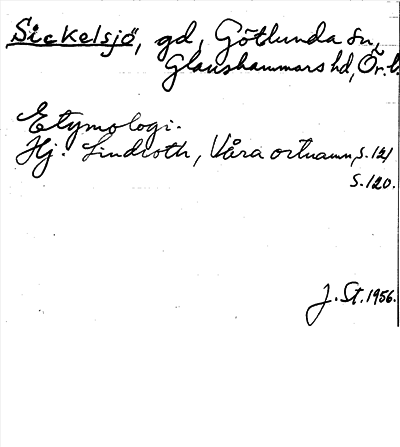 Sickelsjö, gd, Götlunda sn,
Glanshammars hd, Ör. l.
Etymologi.
Hj. Lindroth, Våra ortnamn, s. 121
s. 120.
J. St. 1956.